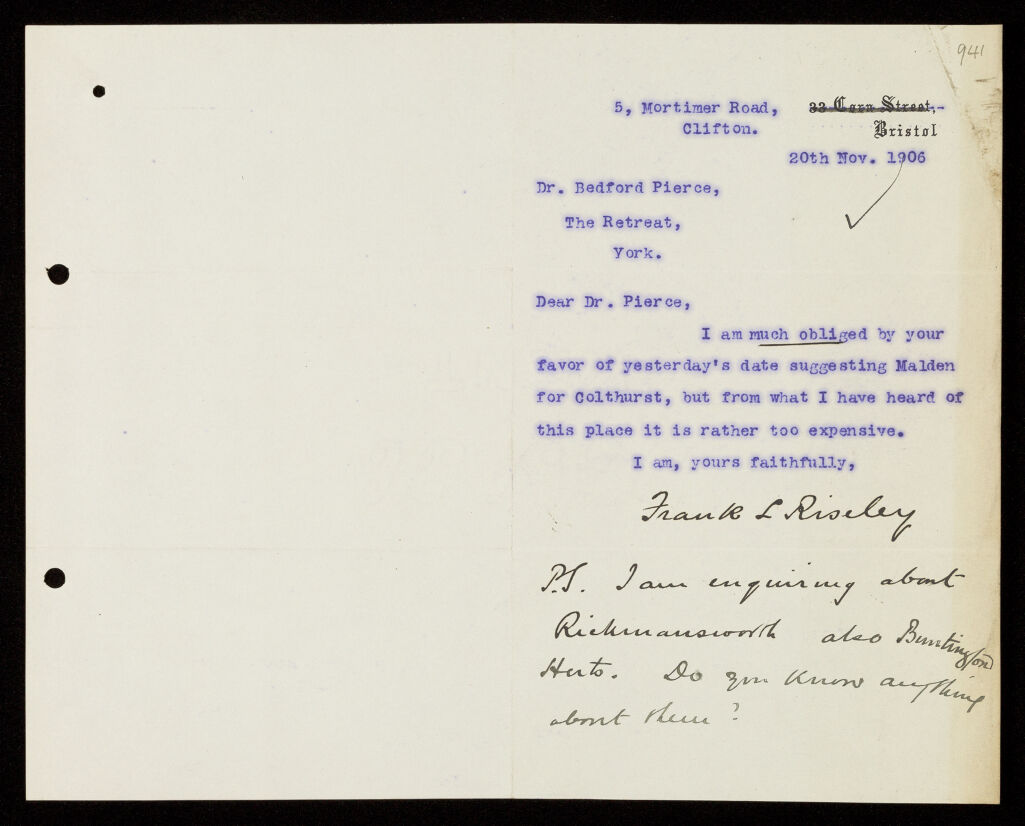 941
5, Mortimer Road, 33 Corn Street,-
Clifton. Bristol
20th Nov. 1906
Dr. Bedford Pierce,
The Retreat,
York.
Dear Dr. Pierce,
I am much obliged by your
favor of yesterday's date suggesting Malden
for Colthurst, but from what I have heard of
this place it is rather too expensive.
I am, yours faithfully,
Frank L Riseley
P.S. I am enquiring about
Rickmansworth also Buntingford
Herts. Do you know anything
about them?